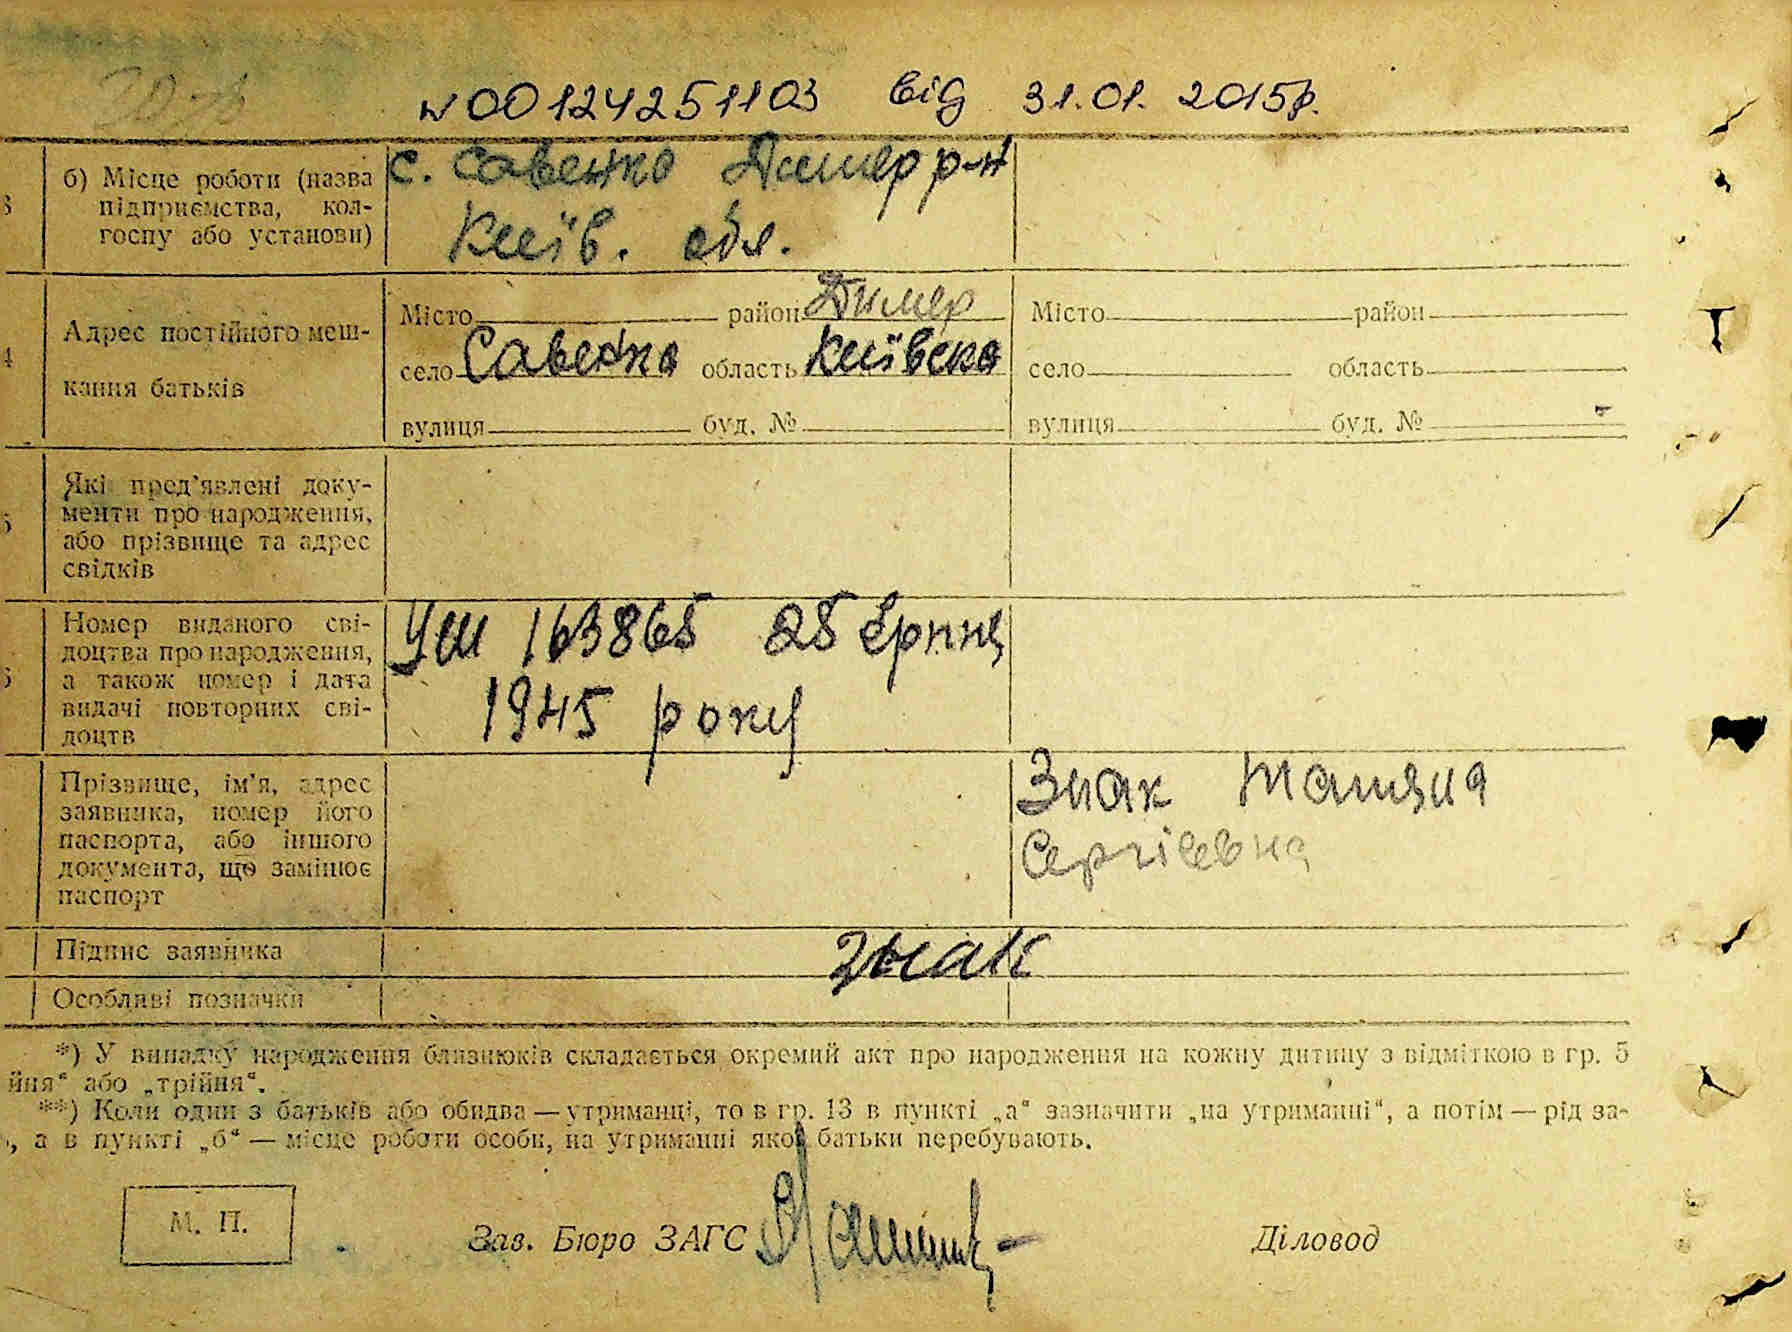 N00124251103 від 31.01.2015р.
б) Місце роботи (назва підприємства, колгоспу або установи)
с. Савенка Димер р-н
Київ. обл.
Адрес постійного мешкання батьків
Місто район Димер
село Савенка область Київська
вулиця буд. №
Місто район
село область
вулиця буд. №
Які пред'явлені документи про народження, або прізвище та адрес свідків
Номер виданого свідоцтва про народження, а також номер і дата видачі повторних свідоцтв
163865 28
1945 року
Прізвище, ім'я, адрес заявника, номер його паспорта, або іншого документа, що замінює паспорт
Знак Татяна
Сергіевна
Підпис заявника
Знак
Особливі позначки
*) У випадку народження близнюків складається окремий акт про народження на кожну дитину з відміткою в гр. 5
йня“ або „трійня“.
**) Коли один з батьків або обидва — утриманці, то в гр. 13 в пункті „а“ зазначити „на утриманні“, а потім — рід за-
, а в пункті „б“ — місце роботи особи, на утриманні якої батьки перебувають.
М. П.
Зав. Бюро ЗАГС
Діловод